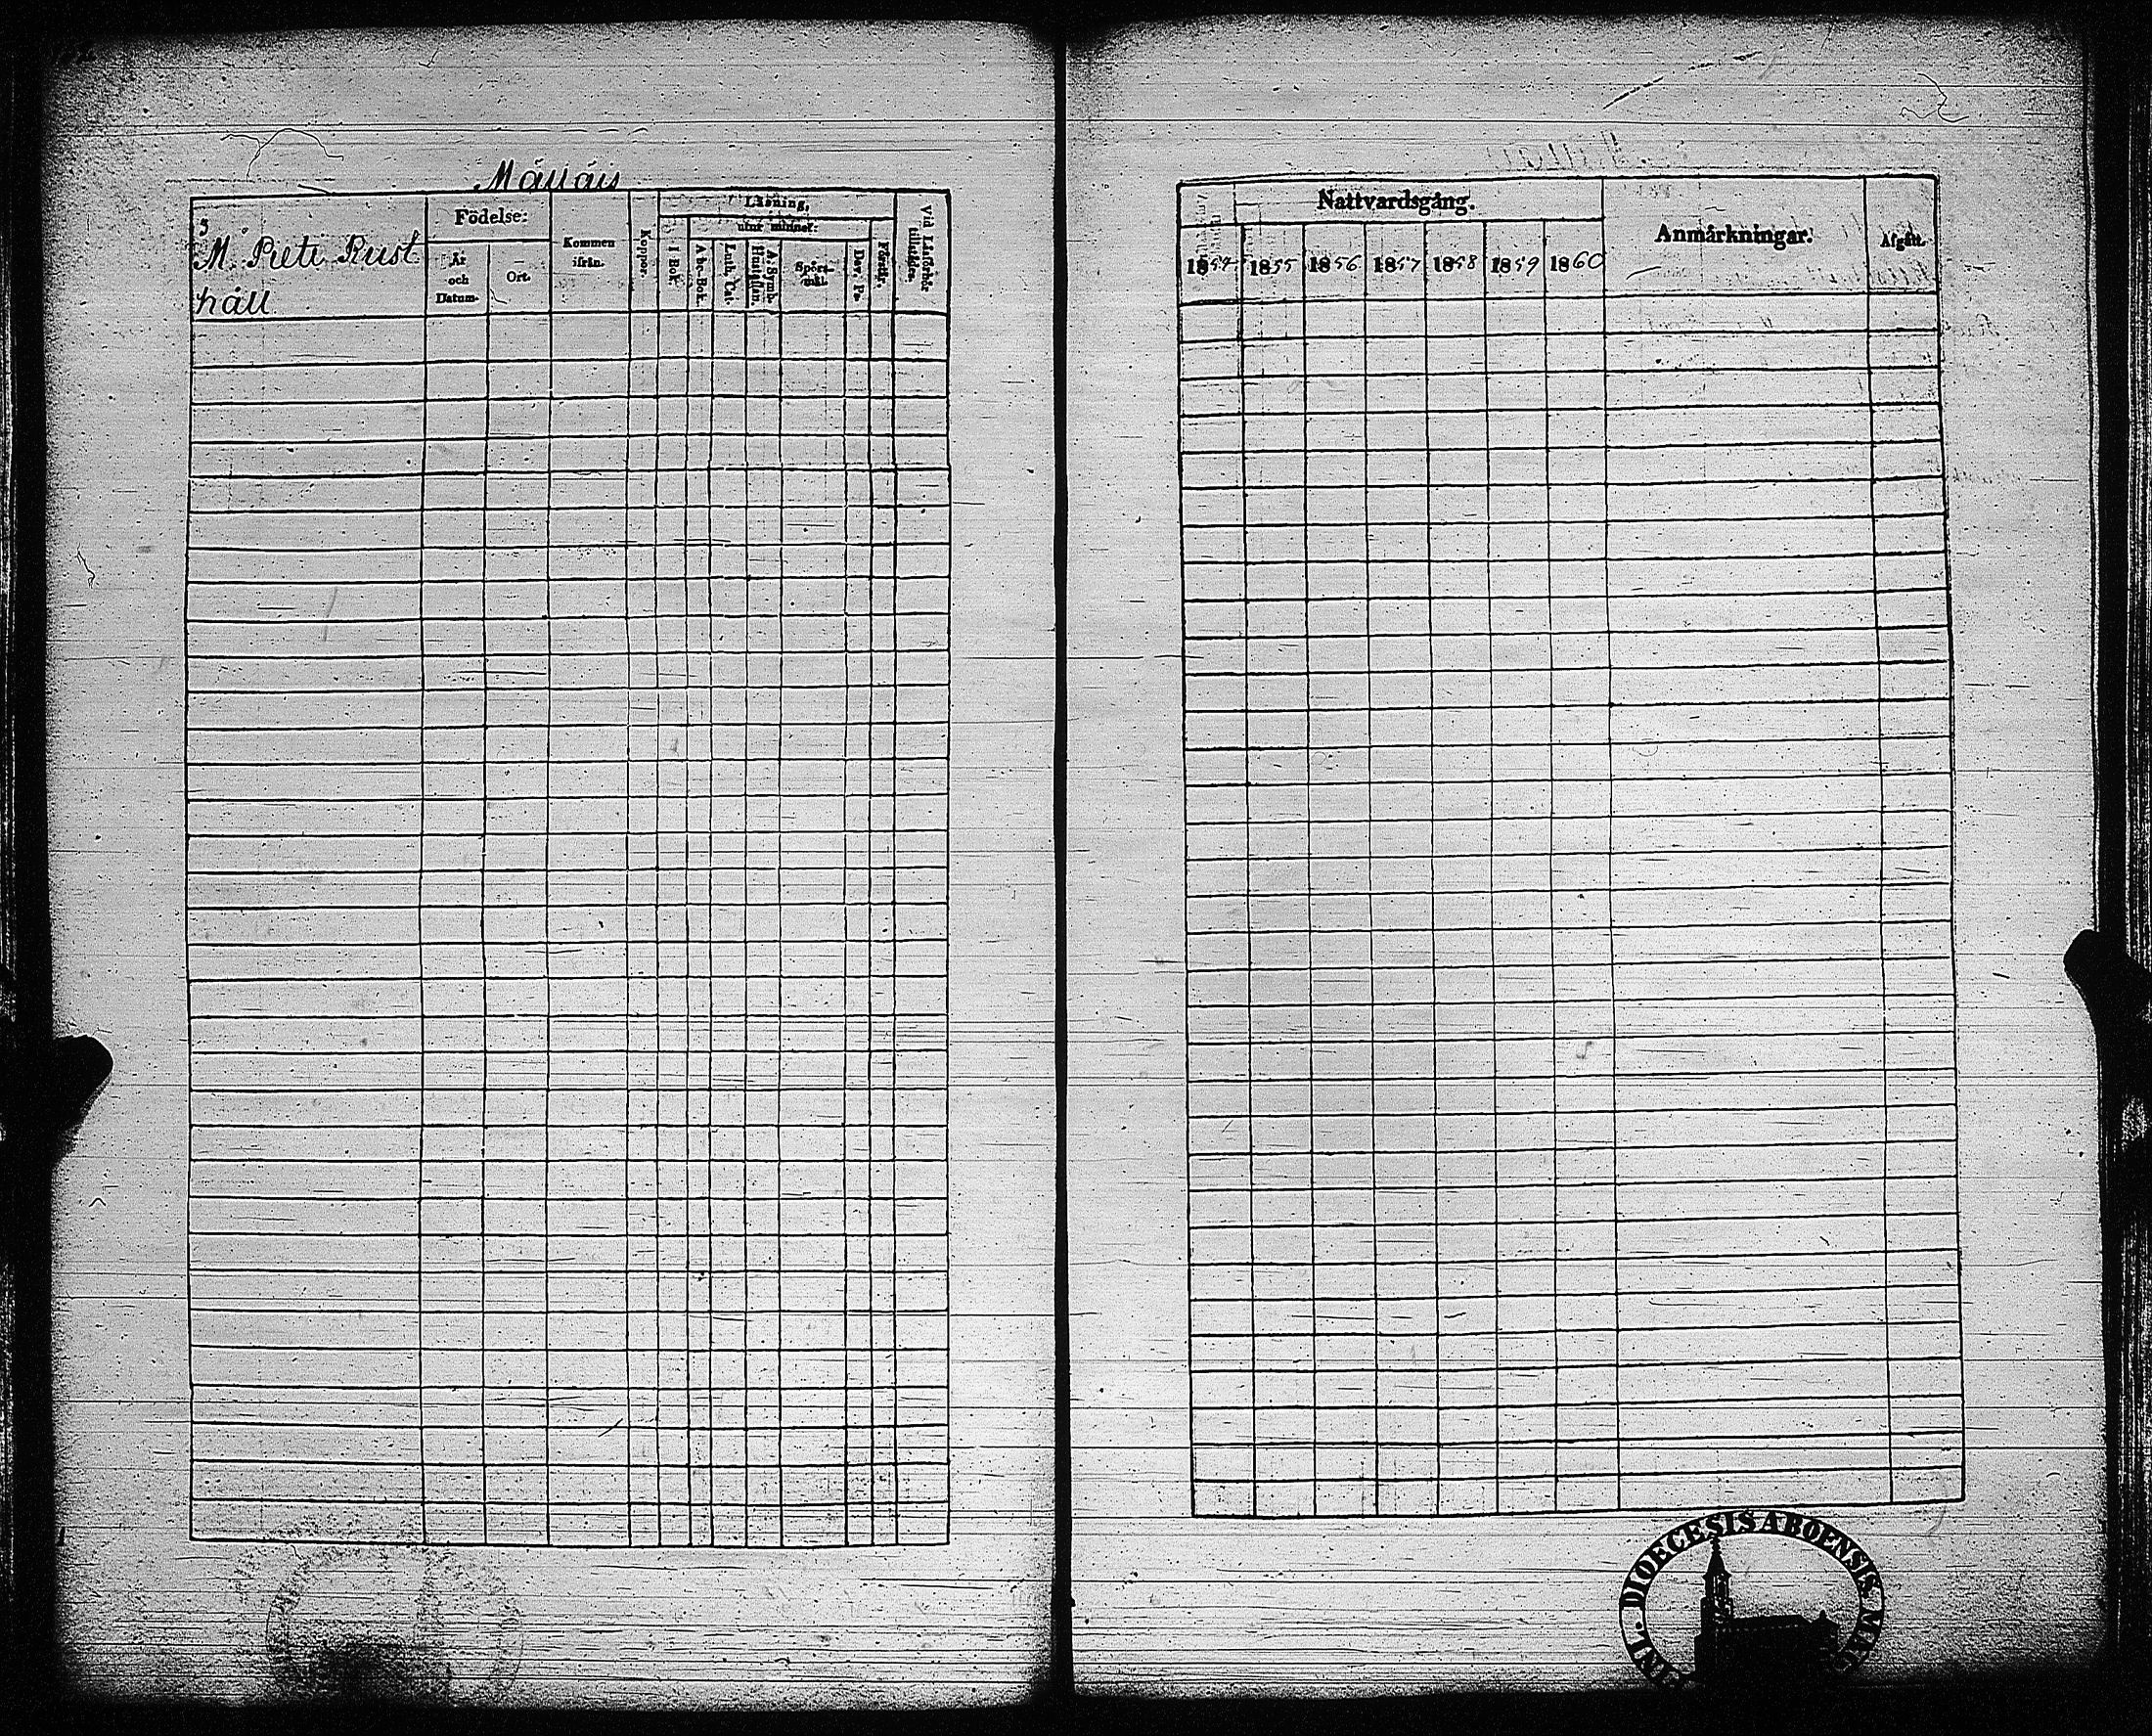 3
M. Pieti Rust
håll
Födelse:
År
och
Datum.
Ort.
Kommen
ifrån.
Koppor.
Läsning,
utur minnet:
I Bok.
A b c-Bok.
Luth. Cat.
Hustaflan.
A. Symb.
Spörs-
mål.
Dav. Ps.
Förstår.
Vid Läsförhör
tillstädes.
Nattvardsgång.
1854
1855
1856
1857
1858
1859
1860
Anmärkningar.
Afgått.
DIOECESIS ABOENSIS